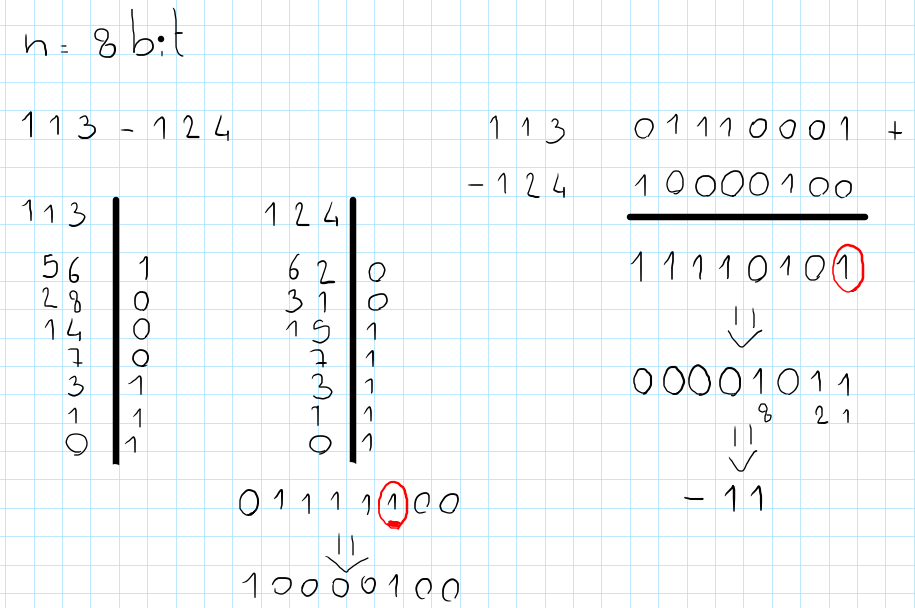 n = 8 bit
113 - 124
113
56 1
28 0
14 0
7 0
3 1
1 1
0 1
124
62 0
31 0
15 1
7 1
3 1
1 1
0 1
01111100
⇓
10000100
113 01110001 +
-124 10000100
11110101
⇓
00001011
8 21
⇓
-11